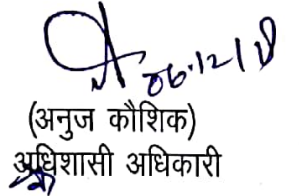 06.12/18
(अनुज कौशिक)
अधिशासी अधिकारी